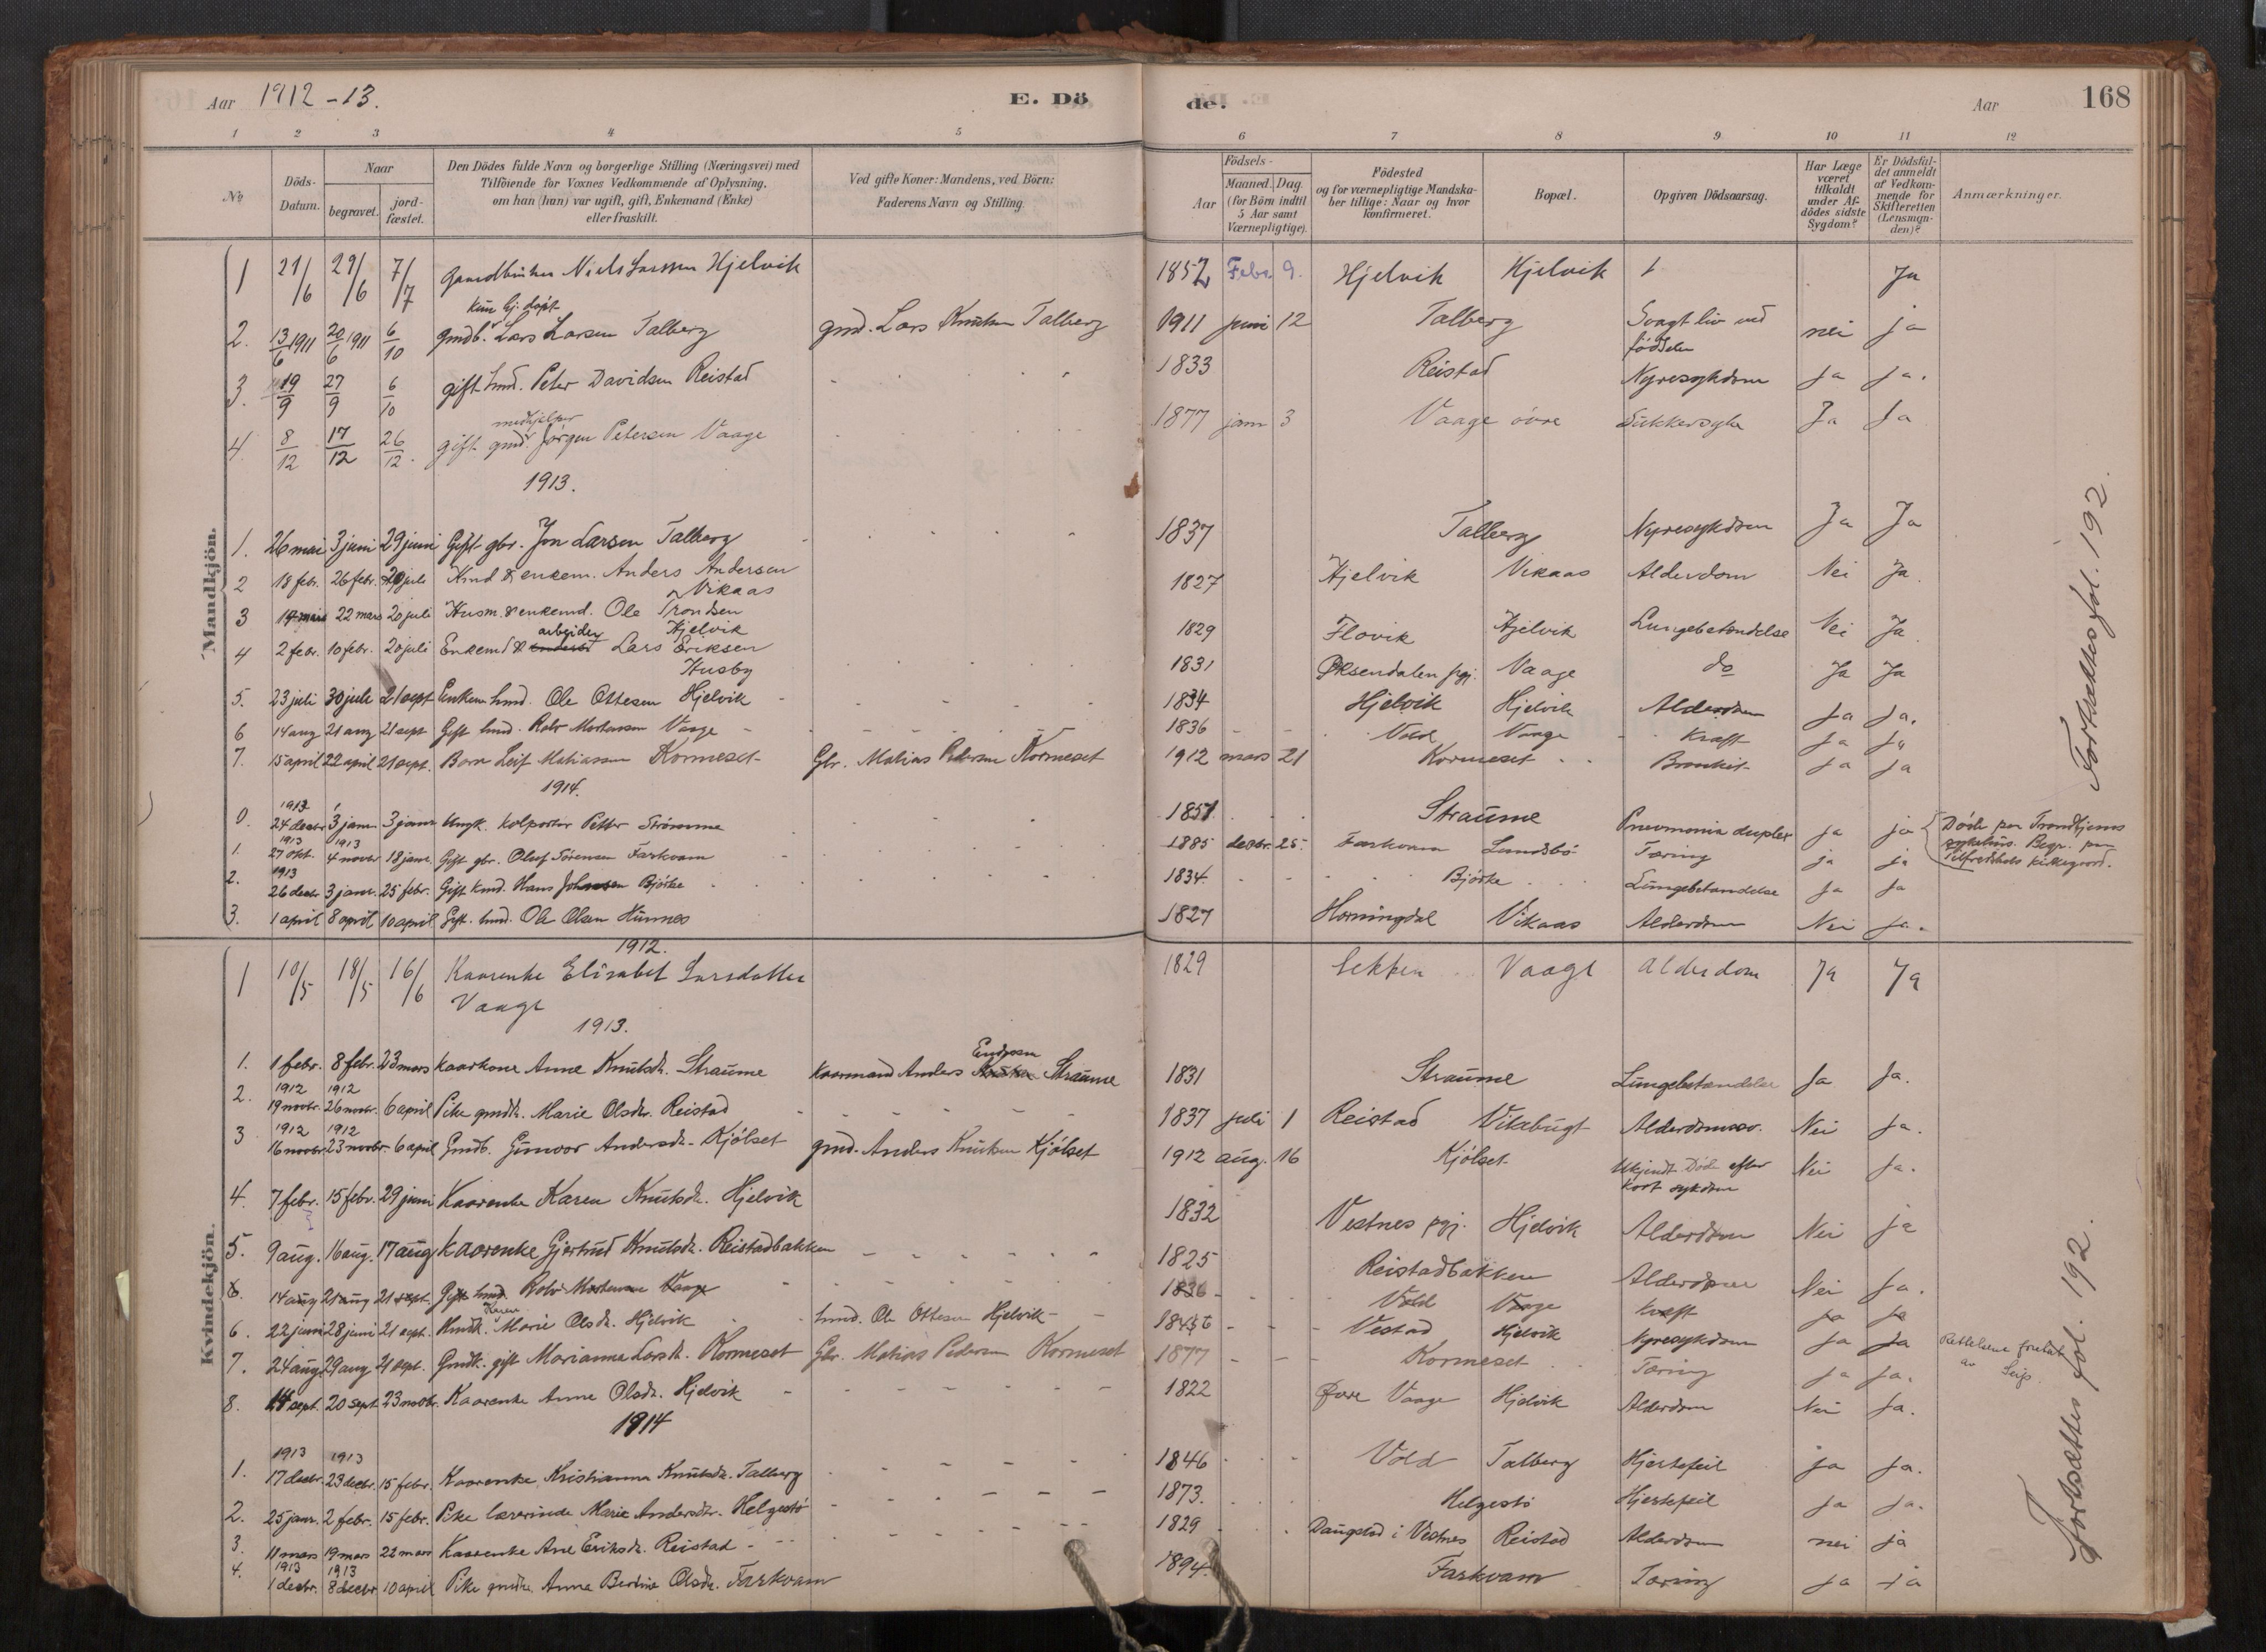 Aar 1912-13. E. Dö
de. Aar 168
1 2 3 4 5 6 7 8 9 10 11 12
No
Döds-Datum.
Naar
begravet.
jord-fæstet.
Den Dödes fulde Navn og borgerlige Stilling (Næringsvei) med
Tilföiende for Voxnes Vedkommende af Oplysning,
om han (hun) var ugift, gift, Enkemand (Enke)
eller fraskilt.
Ved gifte Koner: Mandens, ved Börn:
Faderens Navn og Stilling.
Födsels-
Aar
Maaned. Dag.
(for Börn indtil
5 Aar samt
Værnepligtige).
Födested
og for værnepligtige Mandska-
ber tillige: Naar og hvor
konfirmeret.
Bopæl.
Opgiven Dödsaarsag.
Har Læge
været
tilkaldt
under Af-
dödes sidste
Sygdom?
Er Dödsfal-
det anmeldt
af Vedkom-
mende for
Skifteretten
(Lensman-
den)?
Anmærkninger.
Mandkjön.
1 21/6 29/6 7/7 Gaardbruker Niels Larsen Hjelvik 1852 Febr. 9. Hjelvik Hjelvik Ja
kun hj. döpt
2. 13/6 1911 20/6 1911 6/10 gmdb. Lars Larsen Talberg gmd. Lars Knutsen Talberg 1911 juni 12 Talberg Svagt liv ved födselen nei ja
3. 19/9 27/9 6/10 gift hmd. Peter Davidsen Reistad 1833 Reistad Nyresykdom Ja Ja.
medhjelper
4 8/12 17/12 26/12. gift gmd. Jörgen Petersen Vaage 1877 jan 3 Vaage övre Sukkersyke Ja Ja
1913.
1. 26 mai 3 juni 29 juni Gift gbr. Jon Larsen Talberg 1837 Talberg Nyresykdom Ja Ja
2 18 febr. 26 febr. 20 juli Kmd & enkem. Anders Andersen Vikaas 1827 Hjelvik Vikaas Alderdom Nei Ja.
3 14 mars 22 mars 20 juli Husm. & enkemd. Ole Trondsen Hjelvik 1829 Flovik Hjelvik Lungebetændelse Nei Ja
4 2 febr. 10 febr. 20 juli Enkemd & arbeider Lars Eriksen Husby 1831 Øksendalen pgj. Vaage do Ja Ja
5. 23 juli 30 juli 21 sept Enkem hmd. Ole Ottesen Hjelvik 1834 Hjelvik Hjelvik Alderdom Ja Ja.
6 14 aug 21 aug 21 sept Gift hmd. Rolv Mortensen Vaage 1836 Vold Vaage Kræft Ja Ja
7. 15 april 22 april 21 sept. Barn Leif Matiassen Kormeset Gbr. Matias Pedersen Kormeset 1912 mars 21 Kormeset Bronkit Ja Ja
1914.
0. 1913 24 decbr 3 janr 3 janr Ungk. kolportör Petter Strömme 1851 Straume Pneumonia duplex ja ja Döde paa Trondhjems sykehus. Begr. paa Tilfredshets kirkegaard.
1. 1913 27 okt. 1913 4 novbr 18 janr. Gift gbr. Oluf Sörensen Farkvam 1885 decbr. 25 Farkvam Lundsbö Tæring ja ja
2. 1913 26 decbr 3 janr. 25 febr. Gift kmd. Hans Johnsen Björke 1834 Björke Lungebetændelse Ja Ja
3. 1 april 8 april 10 april Gift. hmd. Ole Olsen Hunnes 1827 Horningdal Vikaas Alderdom Nei Ja.
Fortsættes fol. 192.
Kvindekjön.
1912.
1 10/5 18/5 16/6 Kaarenke Elisabet Larsdatter Vaage 1829 Sekken Vaage Alderdom Ja Ja
1913.
1. 1 febr. 8 febr. 23 mars Kaarkone Anne Knutsdr. Straume Kaarmand Anders Endresen Straume 1831 Straume Lungebetændelse Ja Ja.
2. 1912 19 novbr. 1912 26 novbr. 6 april Pike gmdtr. Marie Olsdr. Reistad 1837 juli 1 Reistad Vikabugt Alderdomssv. Nei Ja.
3 1912 16 novbr. 1912 23 novbr. 6 april Gmdb. Gunvor Andersdr. Kjölset gmd. Anders Knutsen Kjölset 1912 aug. 16 Kjölset Ukjendt Döde efter kort sykdom Nei Ja.
4. 7 febr. 15 febr. 29 juni Kaarenke Karen Knutsdr. Hjelvik 1832 Vestnes pgj. Hjelvik Alderdom Nei ja
5. 9 aug. 16 aug. 17 aug Kaarenke Gjertrud Knutsdr. Reistadbakken 1825 Reistadbakken Alderdom Nei Ja.
6. 14 aug 21 aug 21 sept. Gift hmd Rolv Mortensen Vaage 1836 Vold Vaage Kræft Ja Ja
6. 22 juni 28 juni 21 sept. Hmdk. Karen Marie Olsdr. Hjelvik hmd. Ole Ottesen Hjelvik 1846 Vestad Hjelvik Nyresykdom Ja Ja Rettelsene foretat av Leif.
7. 24 aug. 29 aug 21 sept. Gmdk. gift Marianne Larsdr. Kormeset Gbr. Matias Pedersen Kormeset 1877 Kormeset Tæring Ja Ja.
8. 14 sept. 20 sept 23 novbr. Kaarenke Anne Olsdr. Hjelvik 1822 Øvre Vaage Hjelvik Alderdom Nei Ja.
1914
1. 1913 17 decbr. 1913 23 decbr. 15 febr. Kaarenke Kristianna Knutsdr. Talberg 1846 Vold Talberg Hjertefeil Ja Ja.
2. 25 janr. 2 febr. 15 febr. Pike lærerinde Marie Andersdr. Helgestö 1873. Helgestö Hjertefeil Ja Ja.
3. 11 mars 19 mars 22 mars Kaarenke Ane Eriksdr. Reistad 1829 Daugstad i Vestnes Reistad Alderdom nei ja
4. 1913 1 decbr. 1913 8 decbr 10 april Pike gmdtr. Anna Berdine Olsdr. Farkvam 1894. Farkvam Tæring Ja Ja
Fortsættes fol. 192.